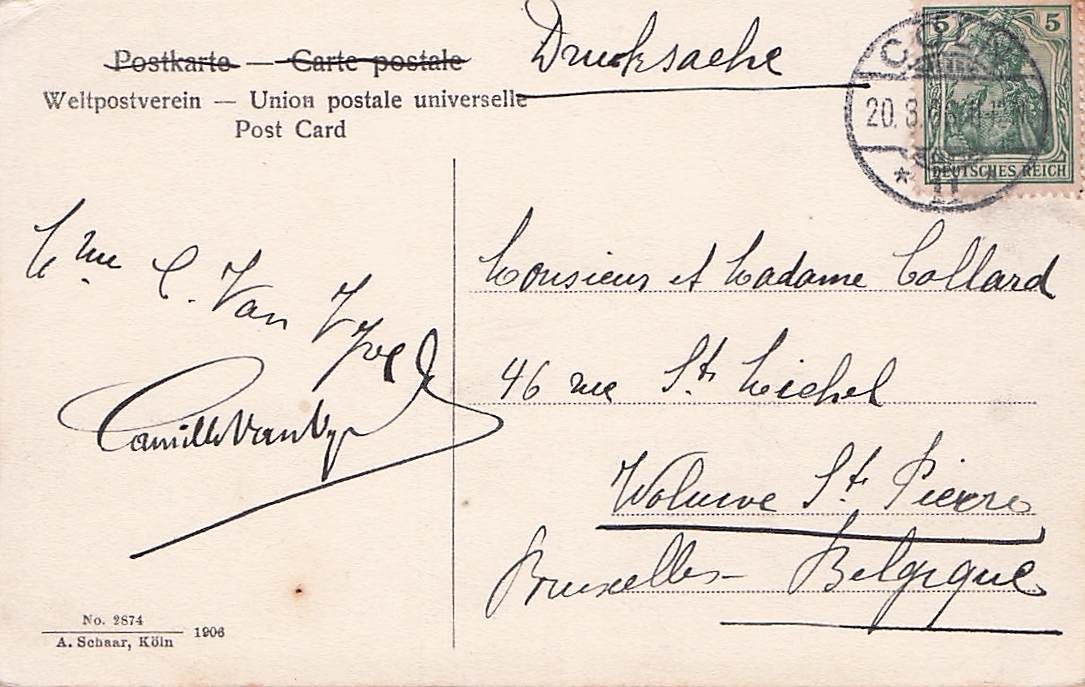 Postkarte — Carte postale
Drucksache
Weltpostverein — Union postale universelle
Post Card
5 5
DEUTSCHES REICH
20. 3.
* 11
Mme C. Van
Camille Van
Monsieur et Madame Collard
46 rue St. Michel
Woluwe St. Pierre
Bruxelles - Belgique
No. 2874
A. Schaar, Köln
1906